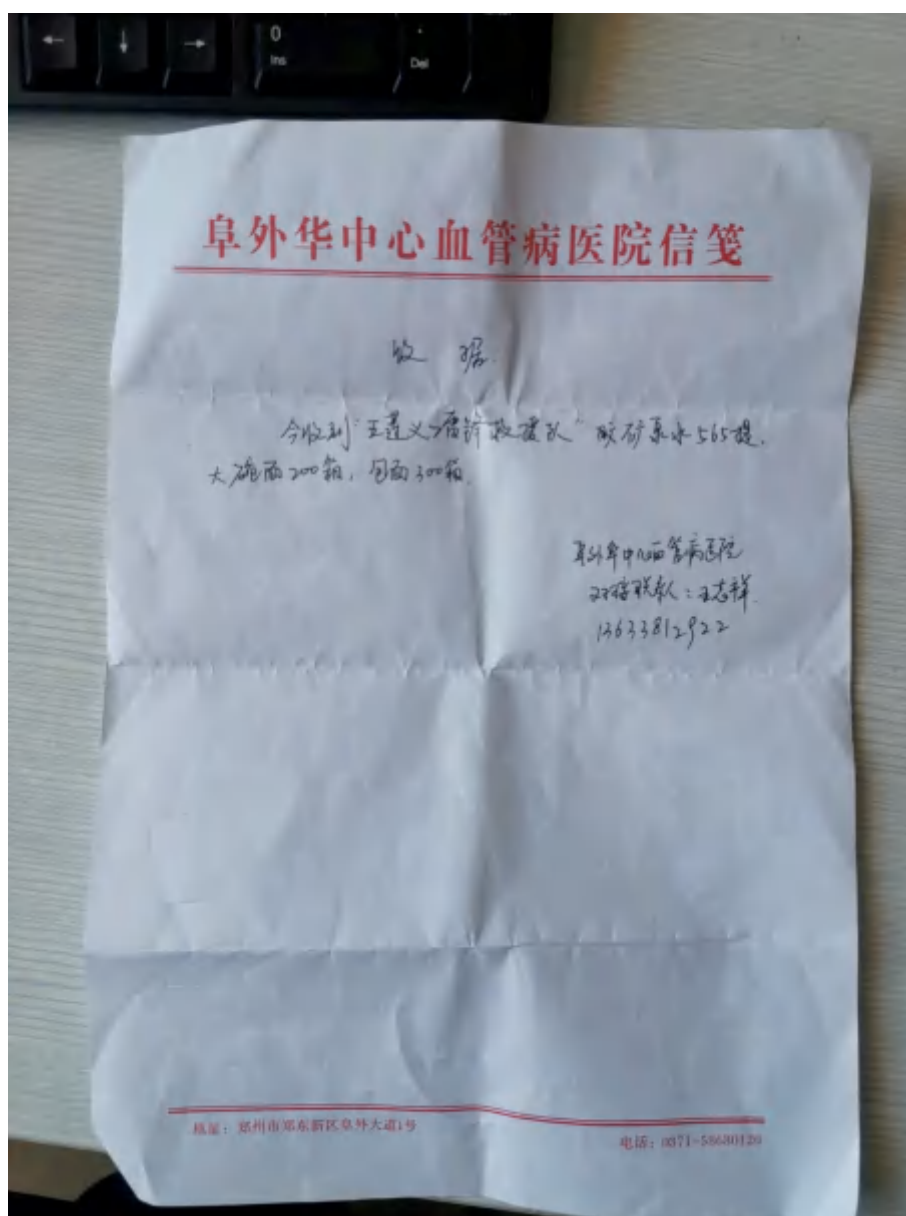 0
Ins
.
Del
阜外华中心血管病医院信笺
收 据
今收到“王遂义雷锋救援队”收矿泉水565提,
大碗面200箱,包面300箱.
阜外华中心血管病医院
对接联系人:王志祥
13633812922
地址:郑州市郑东新区阜外大道1号
电话:0371-58680120